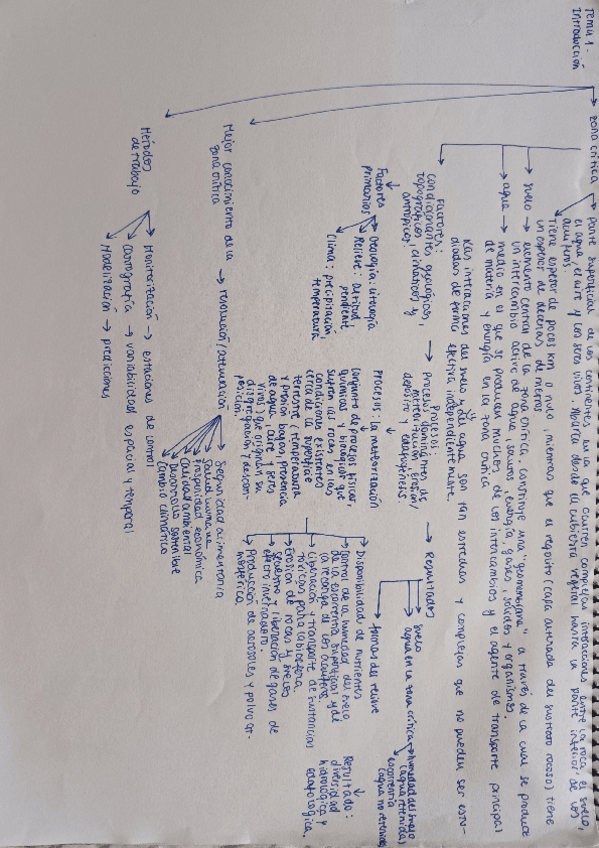 Tema 1 -
Introducción
zona crítica → Parte superficial de los continentes, en la que ocurren complejas interacciones entre la roca, el suelo,
el agua, el aire y los seres vivos. Abarca desde la cubierta vegetal hasta la parte inferior de los
acuíferos.
Tiene espesor de pocos km o nulo, mientras que el regolito (capa alterada del sustrato rocoso) tiene
un espesor de decenas de metros
suelo → elemento central de la zona crítica, constituye una "geomembrana" a través de la cual se produce
un intercambio activo de agua, solutos, energía, gases, sólidos y organismos.
agua → medio en el que se producen muchos de los intercambios y el agente de transporte principal
de materia y energía en la zona crítica
Las interacciones del suelo y del agua son tan estrechas y complejas que no pueden ser estu-
diadas de forma efectiva independientemente.
Factores:
condicionantes geológicos,
topográficos, climáticos y
antrópicos,
→ Procesos:
Procesos dominantes de
meteorización, erosión/
depósito y edafogénesis.
→ Resultados
suelo
agua en la zona crítica
humedad del suelo
(agua retenida)
escorrentía
(agua no retenida)
formas del relieve
Factores
primarios
Geología: litología
Relieve: altitud,
pendiente
Clima: precipitación,
temperatura
Procesos: la meteorización
Conjunto de procesos físicos,
químicos y biológicos que
sufren las rocas en las
condiciones existentes
cerca de la superficie
terrestre (temperatura
y presión bajas, presencia
de agua, aire y seres
vivos) que originan su
disgregación y descom-
posición.
Disponibilidad de nutrientes
Control de la humedad del suelo,
de la escorrentía superficial y de
la recarga de los acuíferos
Liberación y transporte de sustancias
tóxicas para la biosfera.
Erosión de rocas y suelos
Secuestro y liberación de gases de
efecto invernadero.
Producción de aerosoles y polvo at-
mosférico.
Resultado:
diversidad
hidrológica y
edafológica.
Mejor conocimiento de la
zona crítica
→
Seguridad alimentaria
Salud humana
Prosperidad económica
Calidad ambiental
Desarrollo sostenible
Cambio climático
Métodos
de trabajo
Monitorización → estaciones de control
Cartografía → variabilidad espacial y temporal
Modelización → predicciones